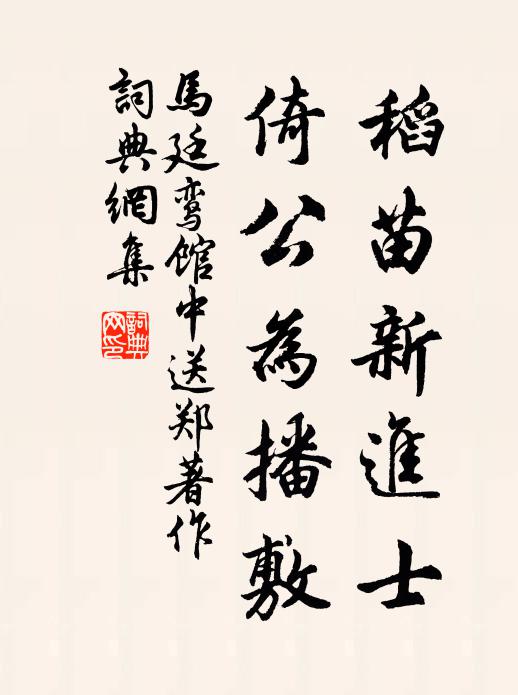 稻苗新進士
倚公為播敷
馬廷鸾館中送郑著作
詞典網集
詞典網印